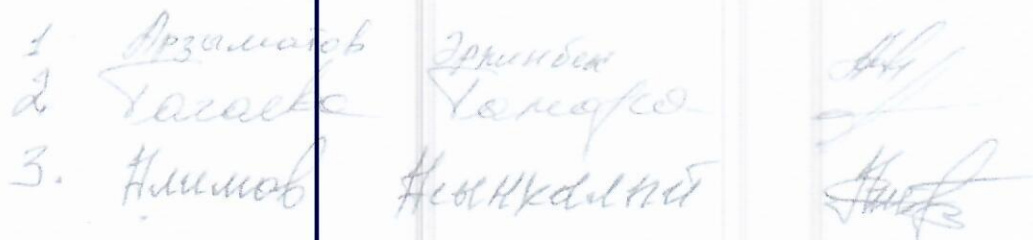 1 Арзыматов Эркинбек
2. Тагаева Тамара
3. Алимов